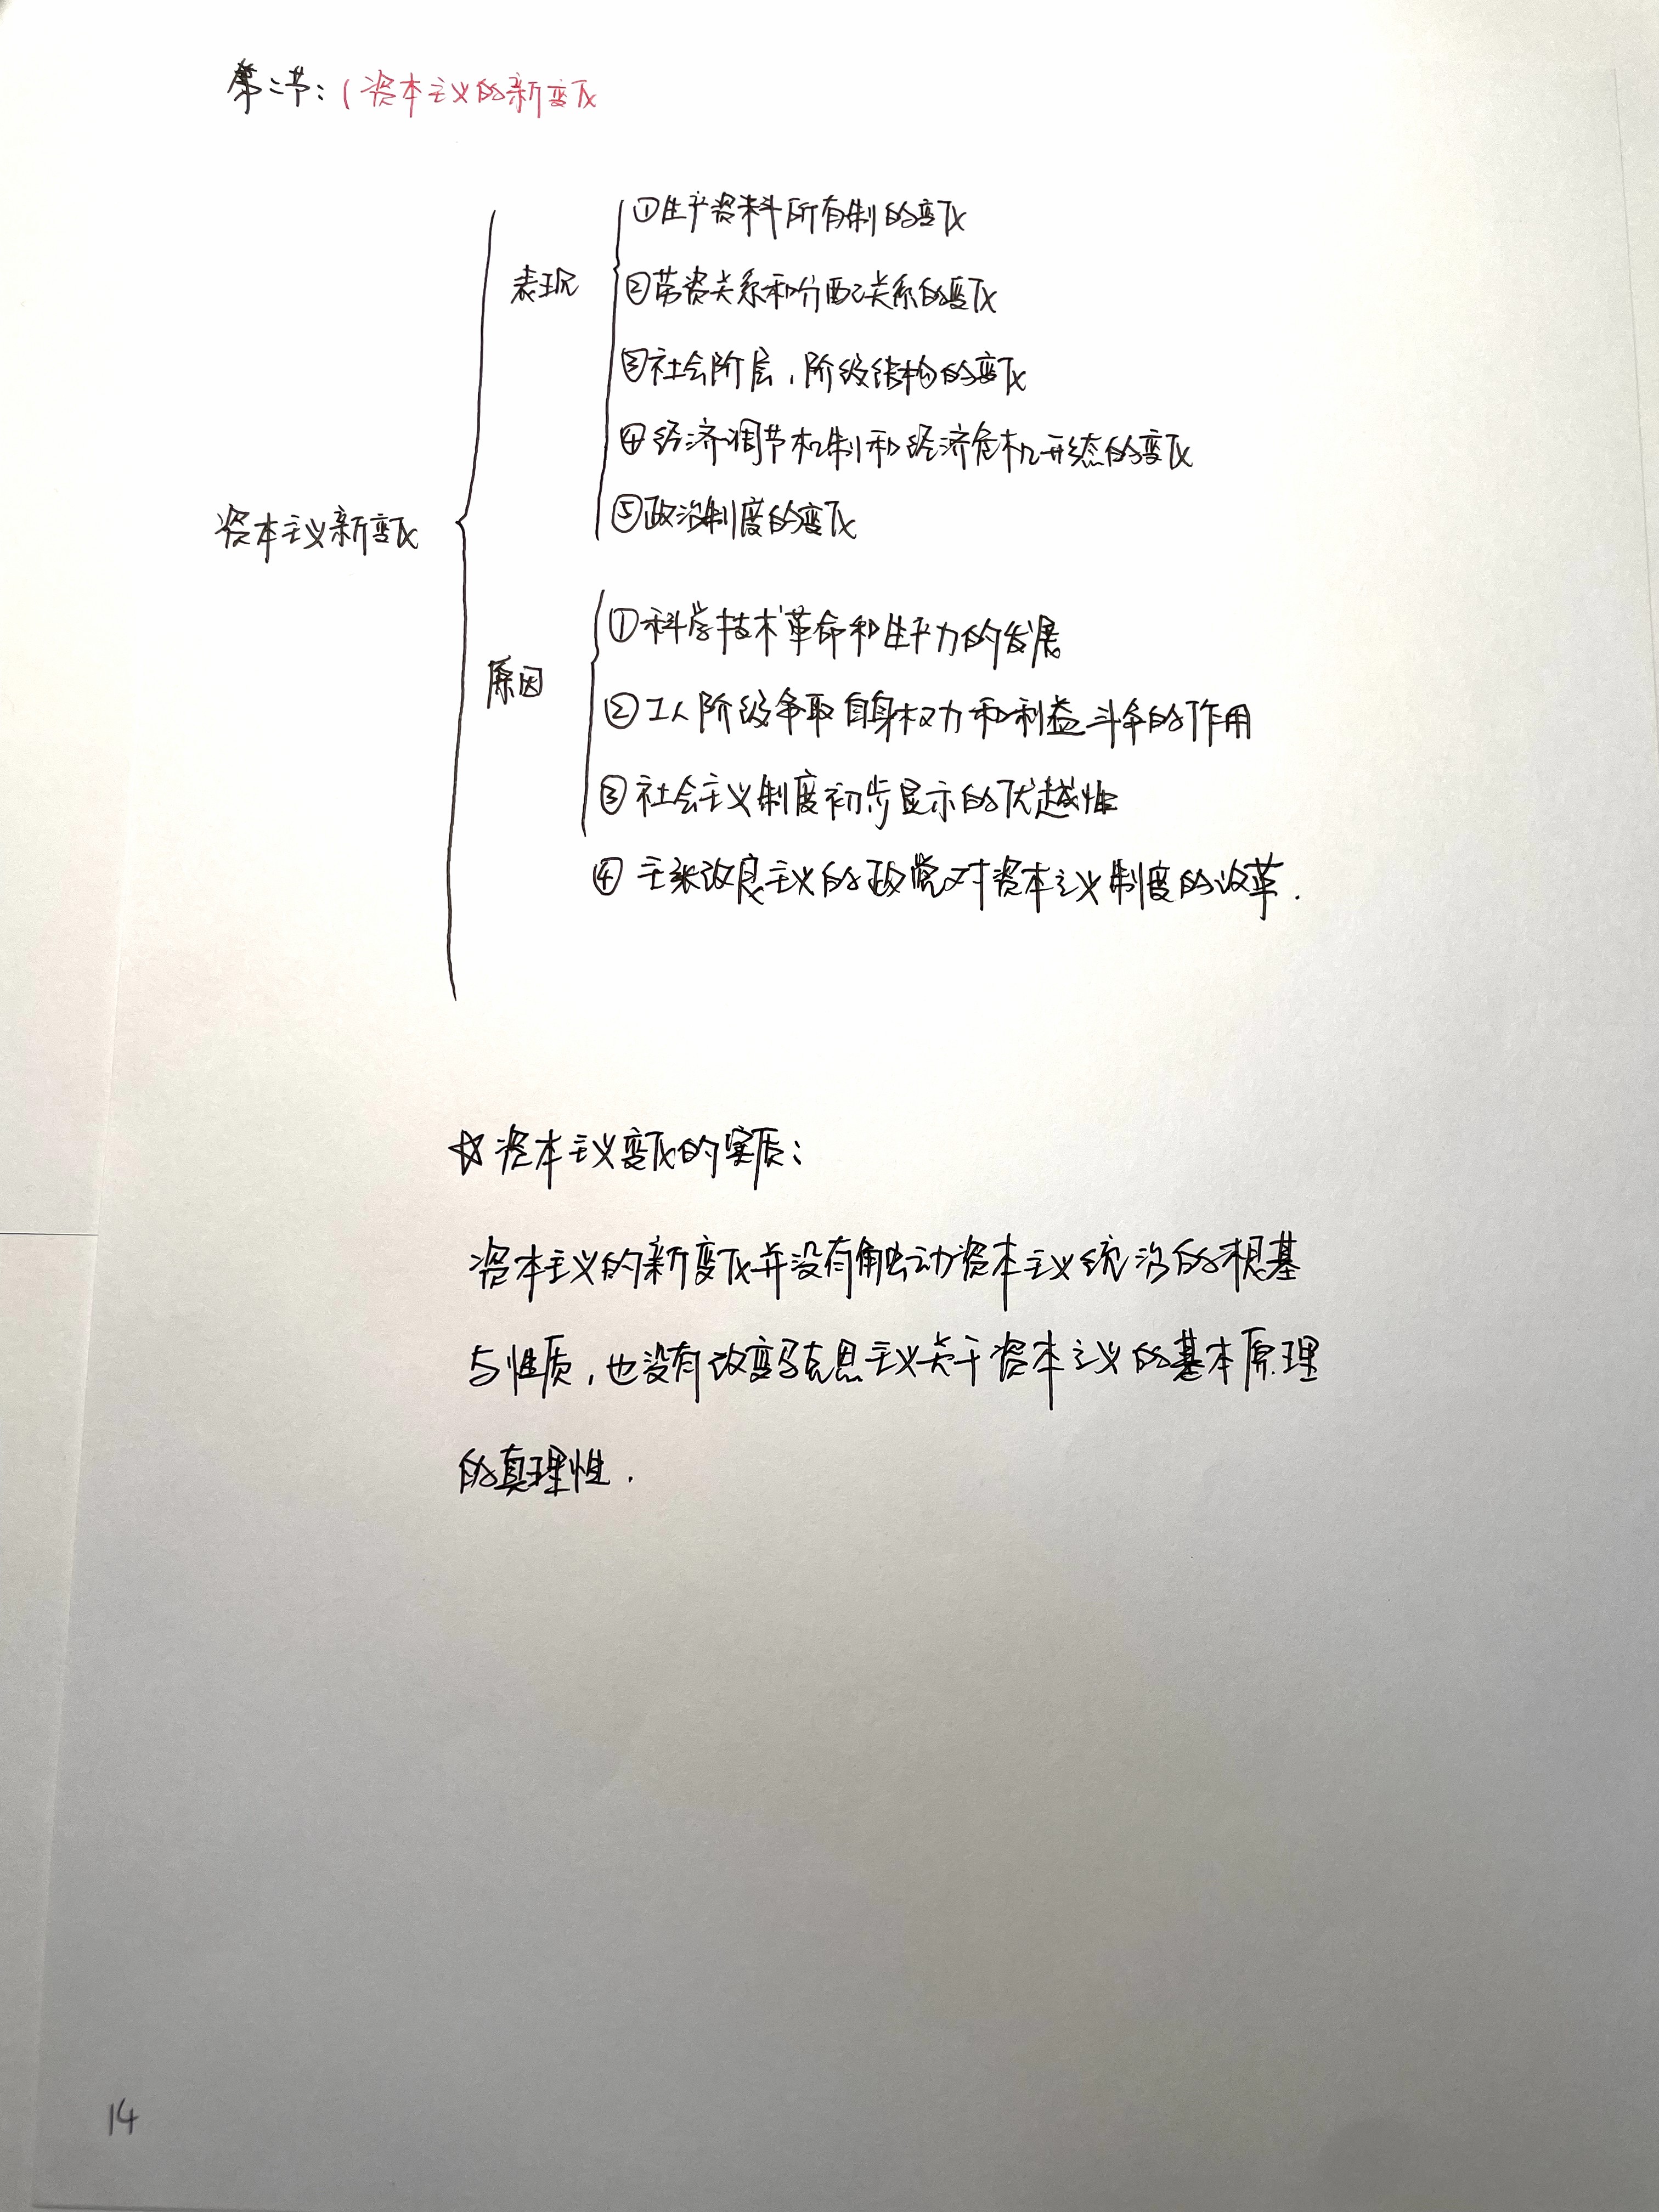 第二节：1 资本主义的新变化
资本主义新变化
表现
①生产资料所有制的变化
②劳资关系和分配关系的变化
③社会阶层，阶级结构的变化
④经济调节机制和经济危机形态的变化
⑤政治制度的变化
原因
①科学技术革命和生产力的发展
②工人阶级争取自身权力和利益斗争的作用
③社会主义制度初步显示的优越性
④主张改良主义的政党对资本主义制度的改革.
☆资本主义变化的实质：
资本主义的新变化并没有触动资本主义统治的根基
与性质，也没有改变马克思主义关于资本主义的基本原理
的真理性.
14